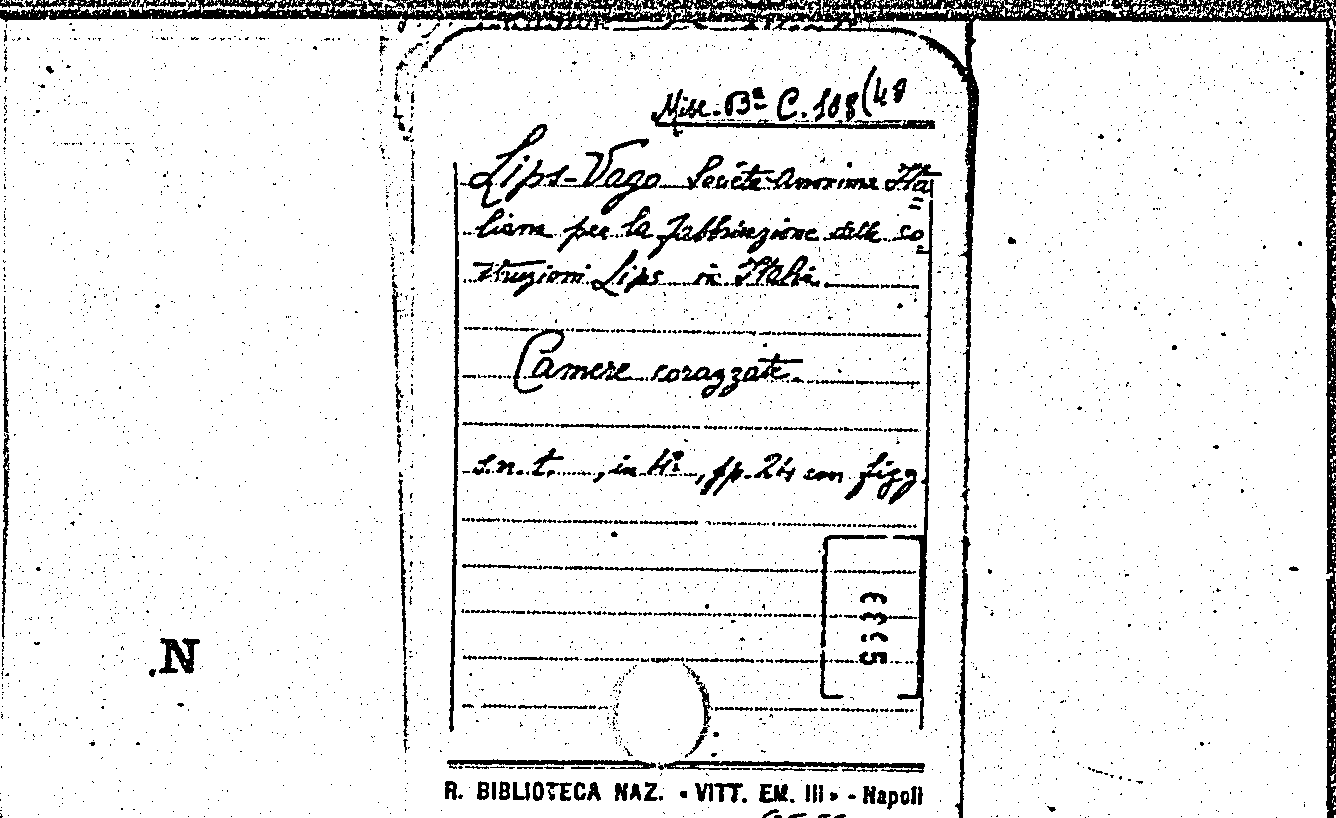 Misc. Bª C. 108(48
Lips-Vago Società Anonima Ita
liana per la fabbricazione delle co
struzioni Lips in Italia.
Camere corazzate.
s.n.t. , in 4º, pp. 24 con figg.
N
R. BIBLIOTECA NAZ. « VITT. EM. III » - Napoli